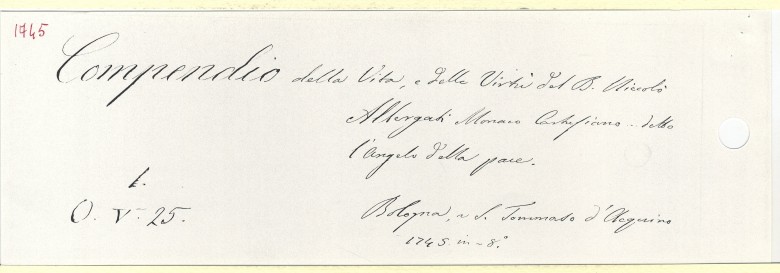 1745
Compendio della Vita, e delle Virtù del B. Niccolò
Albergati Monaco Certosiano detto
l'Angelo della pace.
t.
O. V. 25.
Bologna, a S. Tommaso d'Acquino
1745 in-8.°